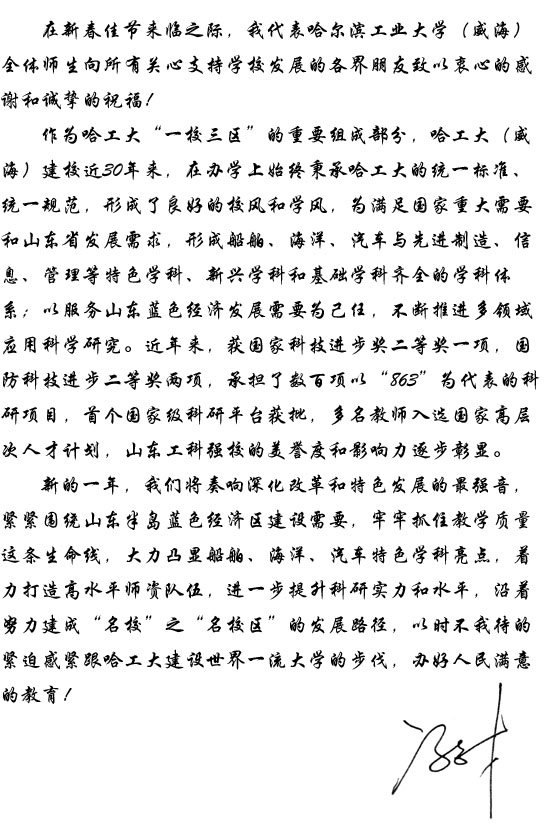 在新春佳节来临之际，我代表哈尔滨工业大学（威海）
全体师生向所有关心支持学校发展的各界朋友致以衷心的感
谢和诚挚的祝福！
作为哈工大“一校三区”的重要组成部分，哈工大（威
海）建校近30年来，在办学上始终秉承哈工大的统一标准、
统一规范，形成了良好的校风和学风，为满足国家重大需要
和山东省发展需求，形成船舶、海洋、汽车与先进制造、信
息、管理等特色学科、新兴学科和基础学科齐全的学科体
系；以服务山东蓝色经济发展需要为己任，不断推进多领域
应用科学研究。近年来，获国家科技进步奖二等奖一项，国
防科技进步二等奖两项，承担了数百项以“863”为代表的科
研项目，首个国家级科研平台获批，多名教师入选国家高层
次人才计划，山东工科强校的美誉度和影响力逐步彰显。
新的一年，我们将奏响深化改革和特色发展的最强音，
紧紧围绕山东半岛蓝色经济区建设需要，牢牢抓住教学质量
这条生命线，大力凸显船舶、海洋、汽车特色学科亮点，着
力打造高水平师资队伍，进一步提升科研实力和水平，沿着
努力建成“名校”之“名校区”的发展路径，以时不我待的
紧迫感紧跟哈工大建设世界一流大学的步伐，办好人民满意
的教育！